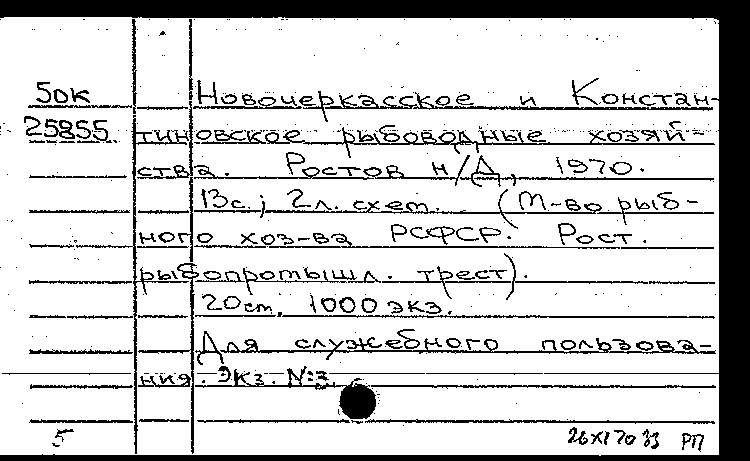 5ОК Новочеркасское и Констан-
25855 тиновское рыбоводные хозяй-
ства. Ростов н/Д, 1970.
13с.; 2л. схем. (М-во рыб-
ного хоз-ва РСФСР. Рост.
рыбопромышл. трест).
20см. 1000 экз.
Для служебного пользова-
ния. Экз. №3.
5 26 XI 70 33 РП